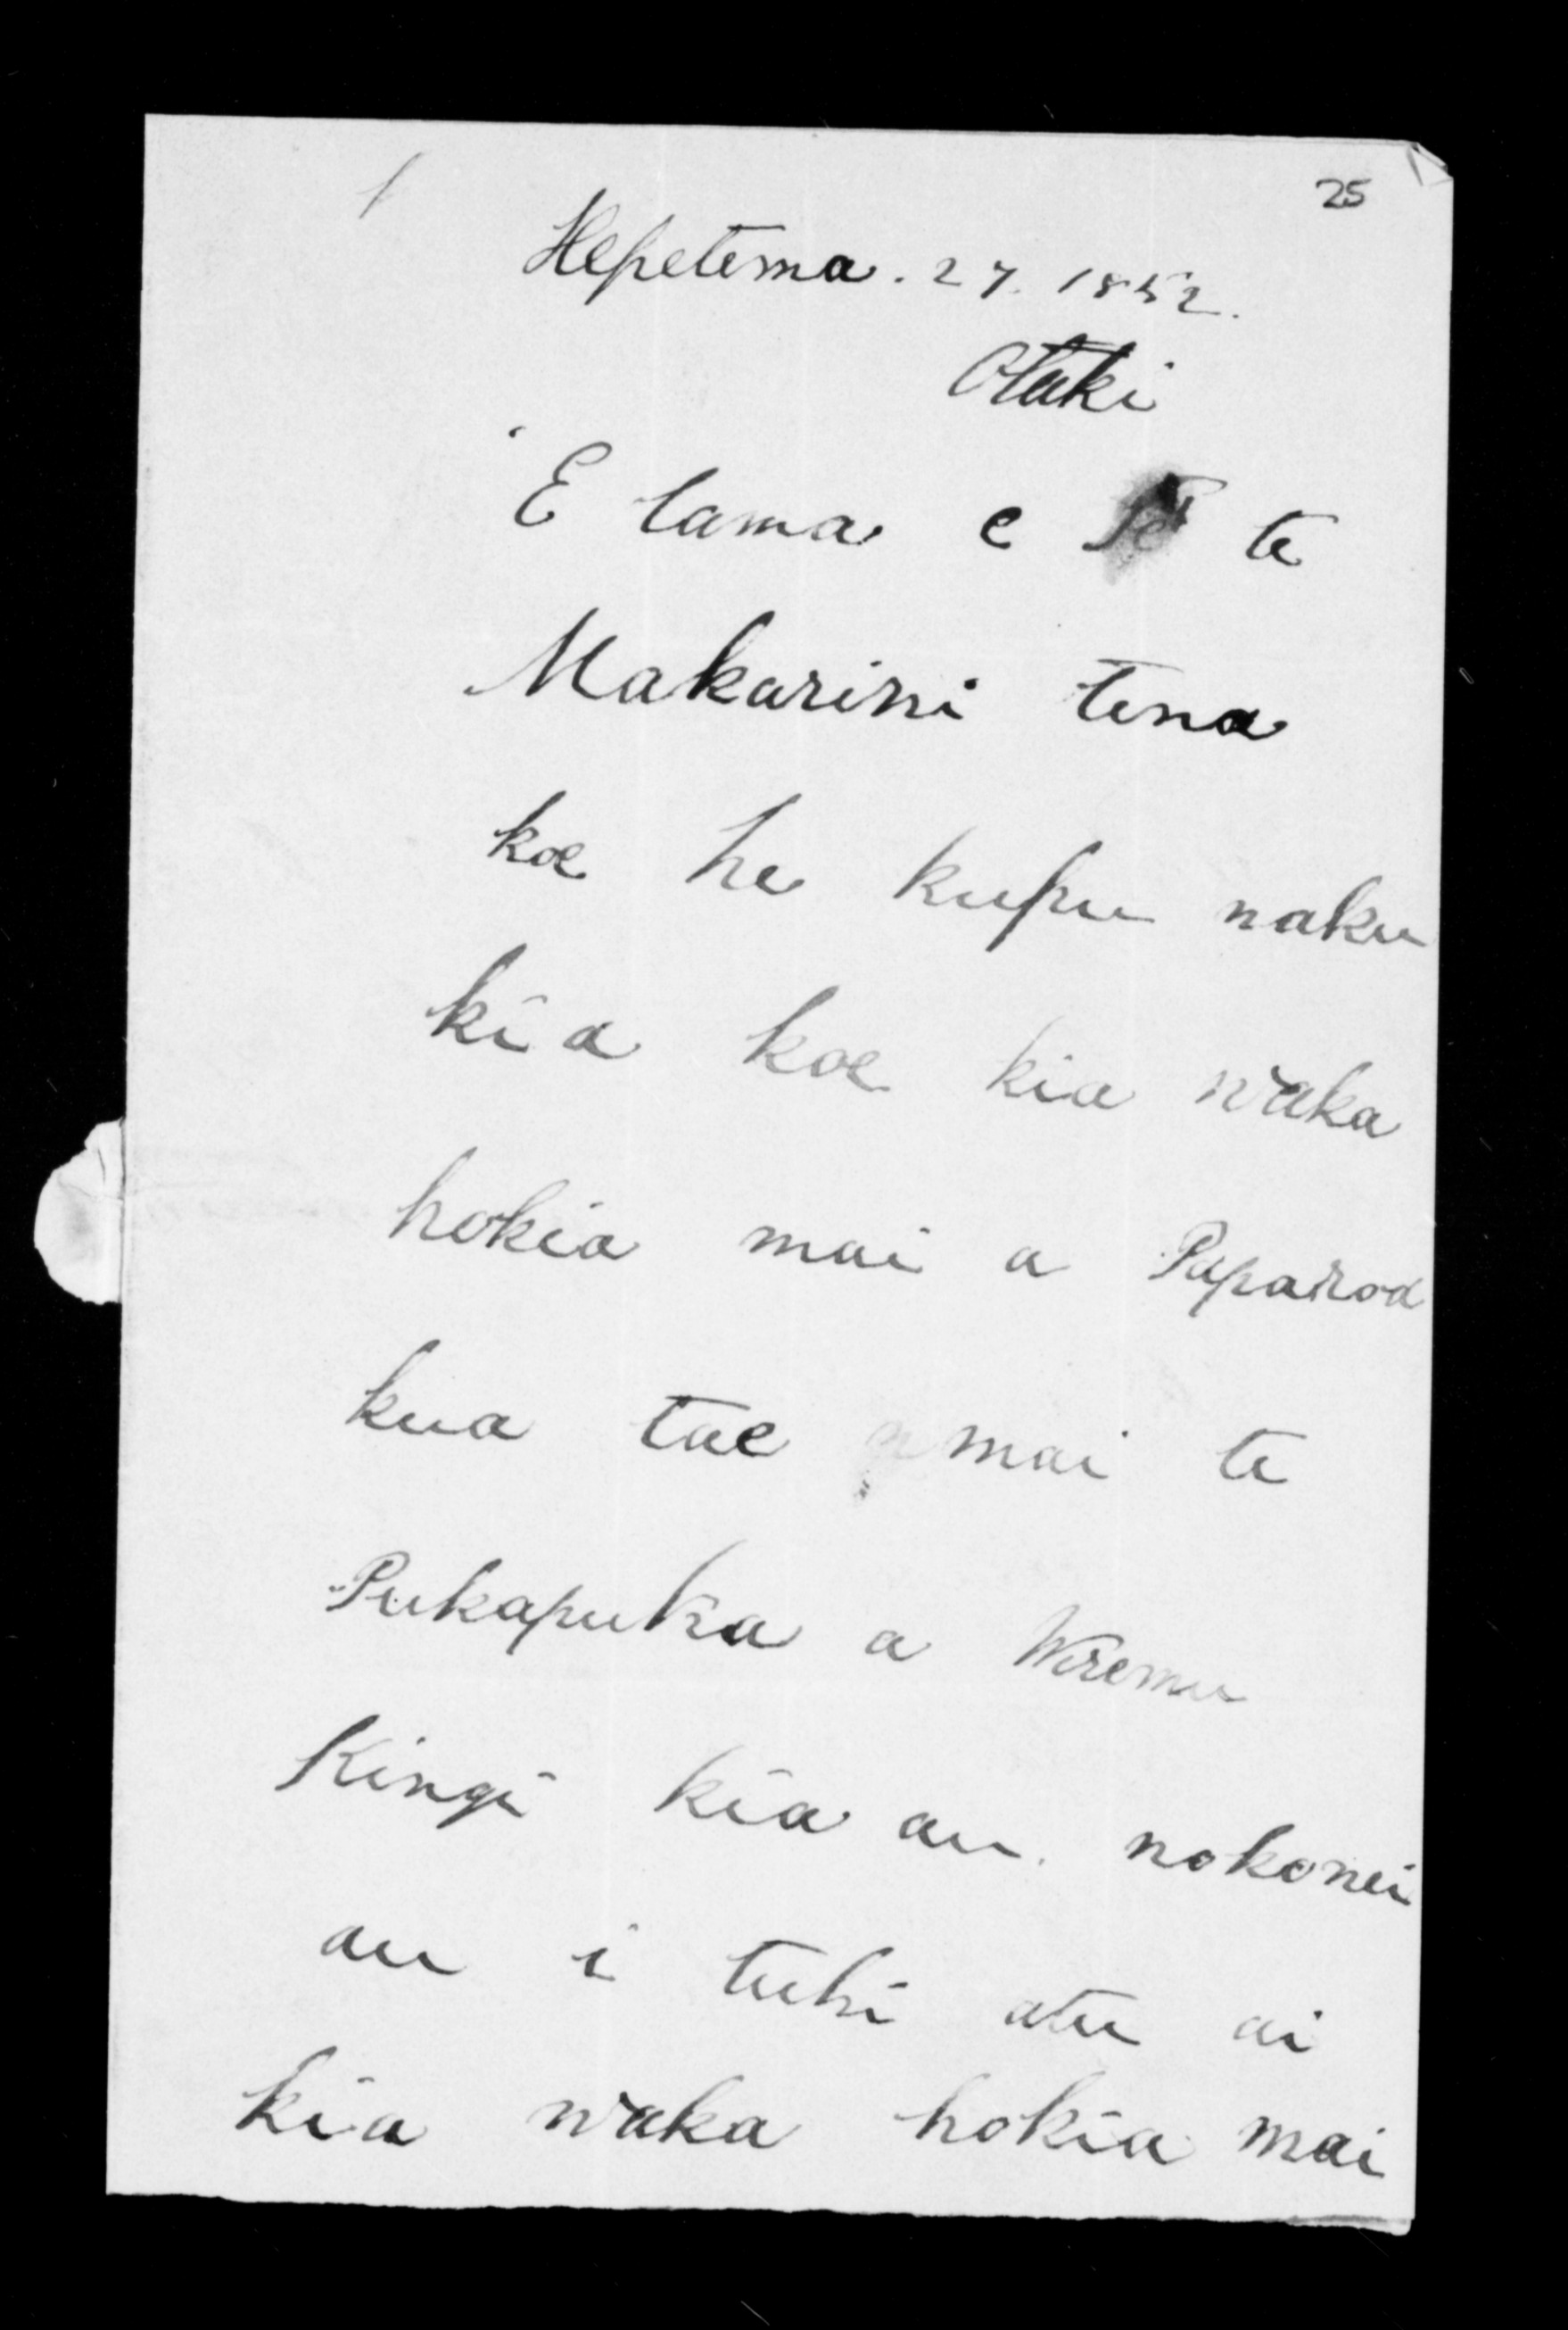 1
25
Hepetema. 27. 1852.
Otaki
E tama e te
Makarini tena
koe he kupu naku
kia koe kia waka
hokia mai a Paparoa
kua tae mai te
Pukapuka a Wiremu
Kingi kia au. nokonei
au i tuhi atu ai
kia waka hokia mai